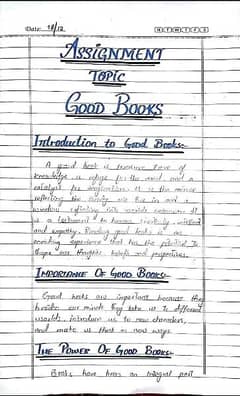 Date: 18/12
ASSIGNMENT
TOPIC
GOOD BOOKS
Introduction to Good Books:-
A good book is treasure trove of
knowledge a refuge for the mind and a
catalyst for imagination. It is the mirror
reflecting the world we live in and a
window
is a testament to human
and empathy. Reading good books is an
enriching experience that has the potential to
shape our thoughts beliefs and perspectives.
IMPORTANCE OF GOOD BOOKS:-
Good books are important because they
broaden our minds they take us to different
worlds, introduce us to new characters,
and make us think in new ways.
THE POWER OF GOOD BOOKS:-
Books have been an integral part